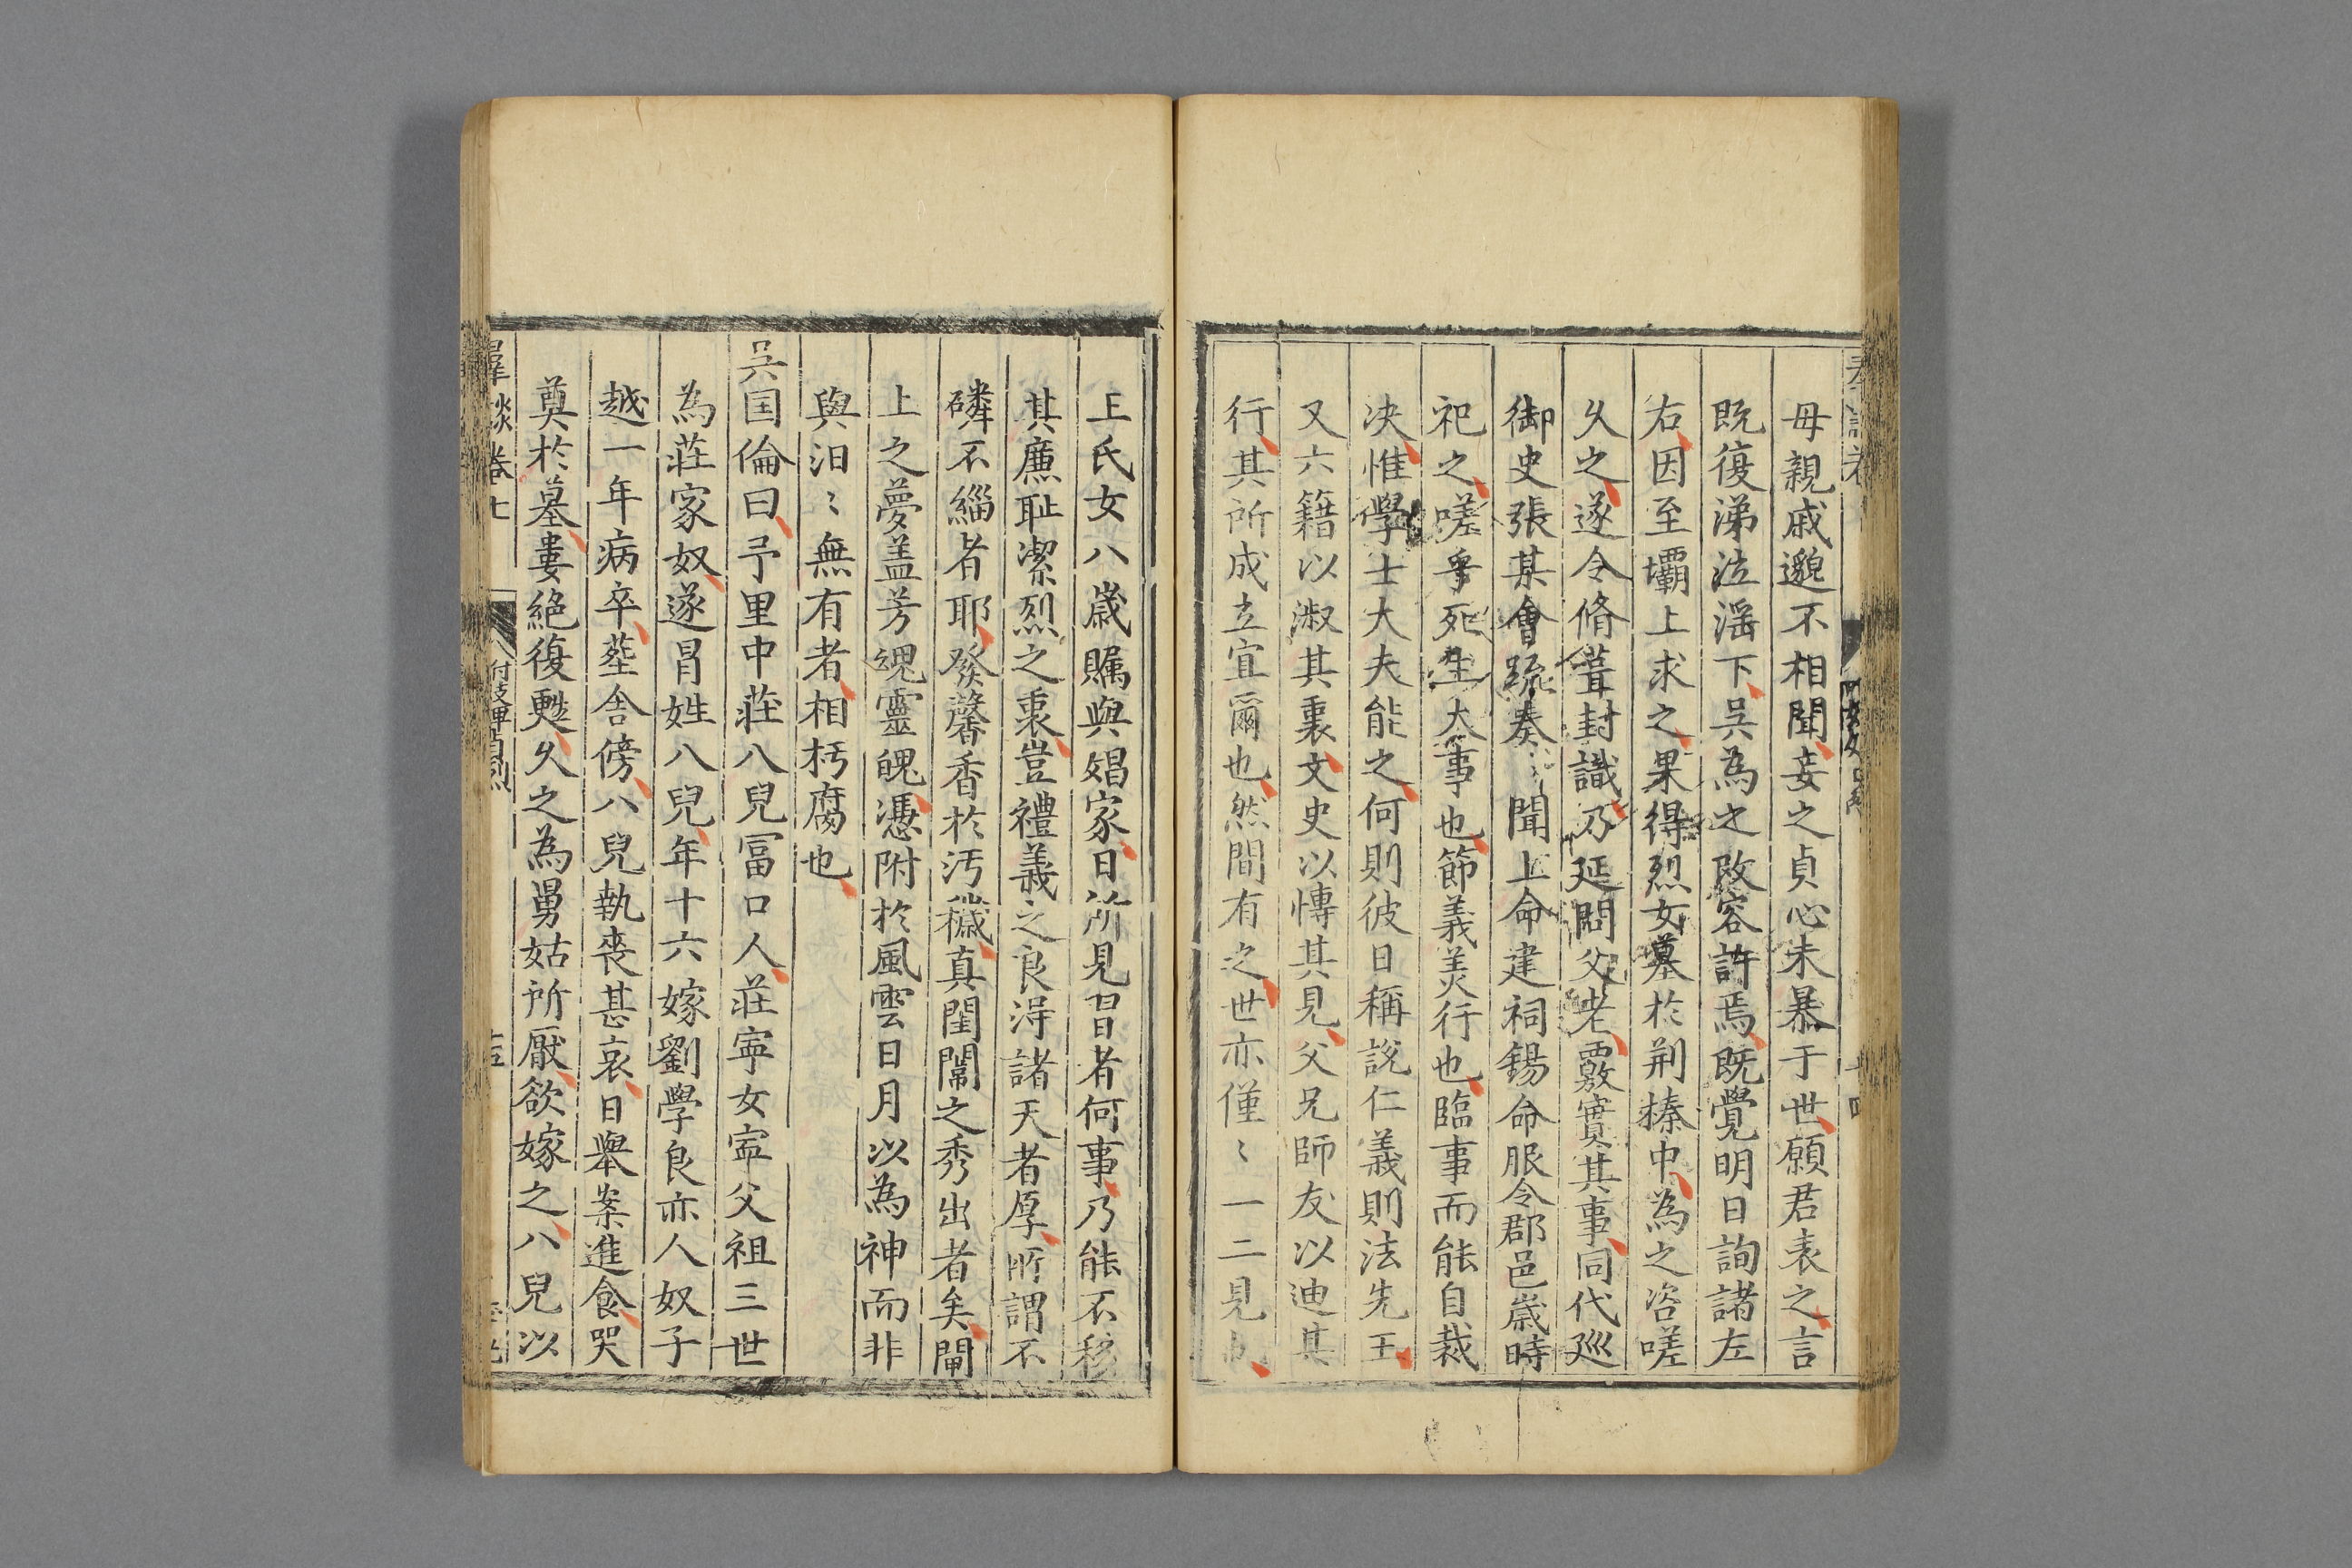 母親戚邈不相聞妾之貞心未暴于世願君表之言
既復涕泣滛下吳為之改容許焉既覺明日詢諸左
右因至壩上求之果得烈女墓於荆榛中為之咨嗟
乆之遂令脩葺封識乃延問父老覈實其事同代廵
御史張某會疏奏聞上命建祠錫命服令郡邑嵗時
祀之嗟乎死生大事也節義美行也臨事而能自裁
决惟學士大夫能之何則彼日稱說仁義則法先王
又六籍以淑其裏文史以愽其見父兄師友以迪其
行其所成立宜爾也然間有之世亦僅〻一二見
王氏女八嵗矚與娼家日所見習者何事乃能不移
其廉耻潔烈之衷豈禮義之良淂諸天者厚所謂不
磷不緇者耶發馨香於汚穢真閨閫之秀出者矣閘
上之夢盖芳魂靈魄憑附於風雲日月以為神而非
與汩〻無有者相朽腐也
吳国倫曰予里中莊八兒冨口人莊寕女寕父祖三世
為莊家奴遂冒姓八兒年十六嫁劉學良亦人奴子
越一年病卒塟舍傍八兒執喪甚哀日舉案進食哭
奠於墓婁絕復甦乆之為舅姑所厭欲嫁之八兒以
羣談卷七 八 付皮 十五